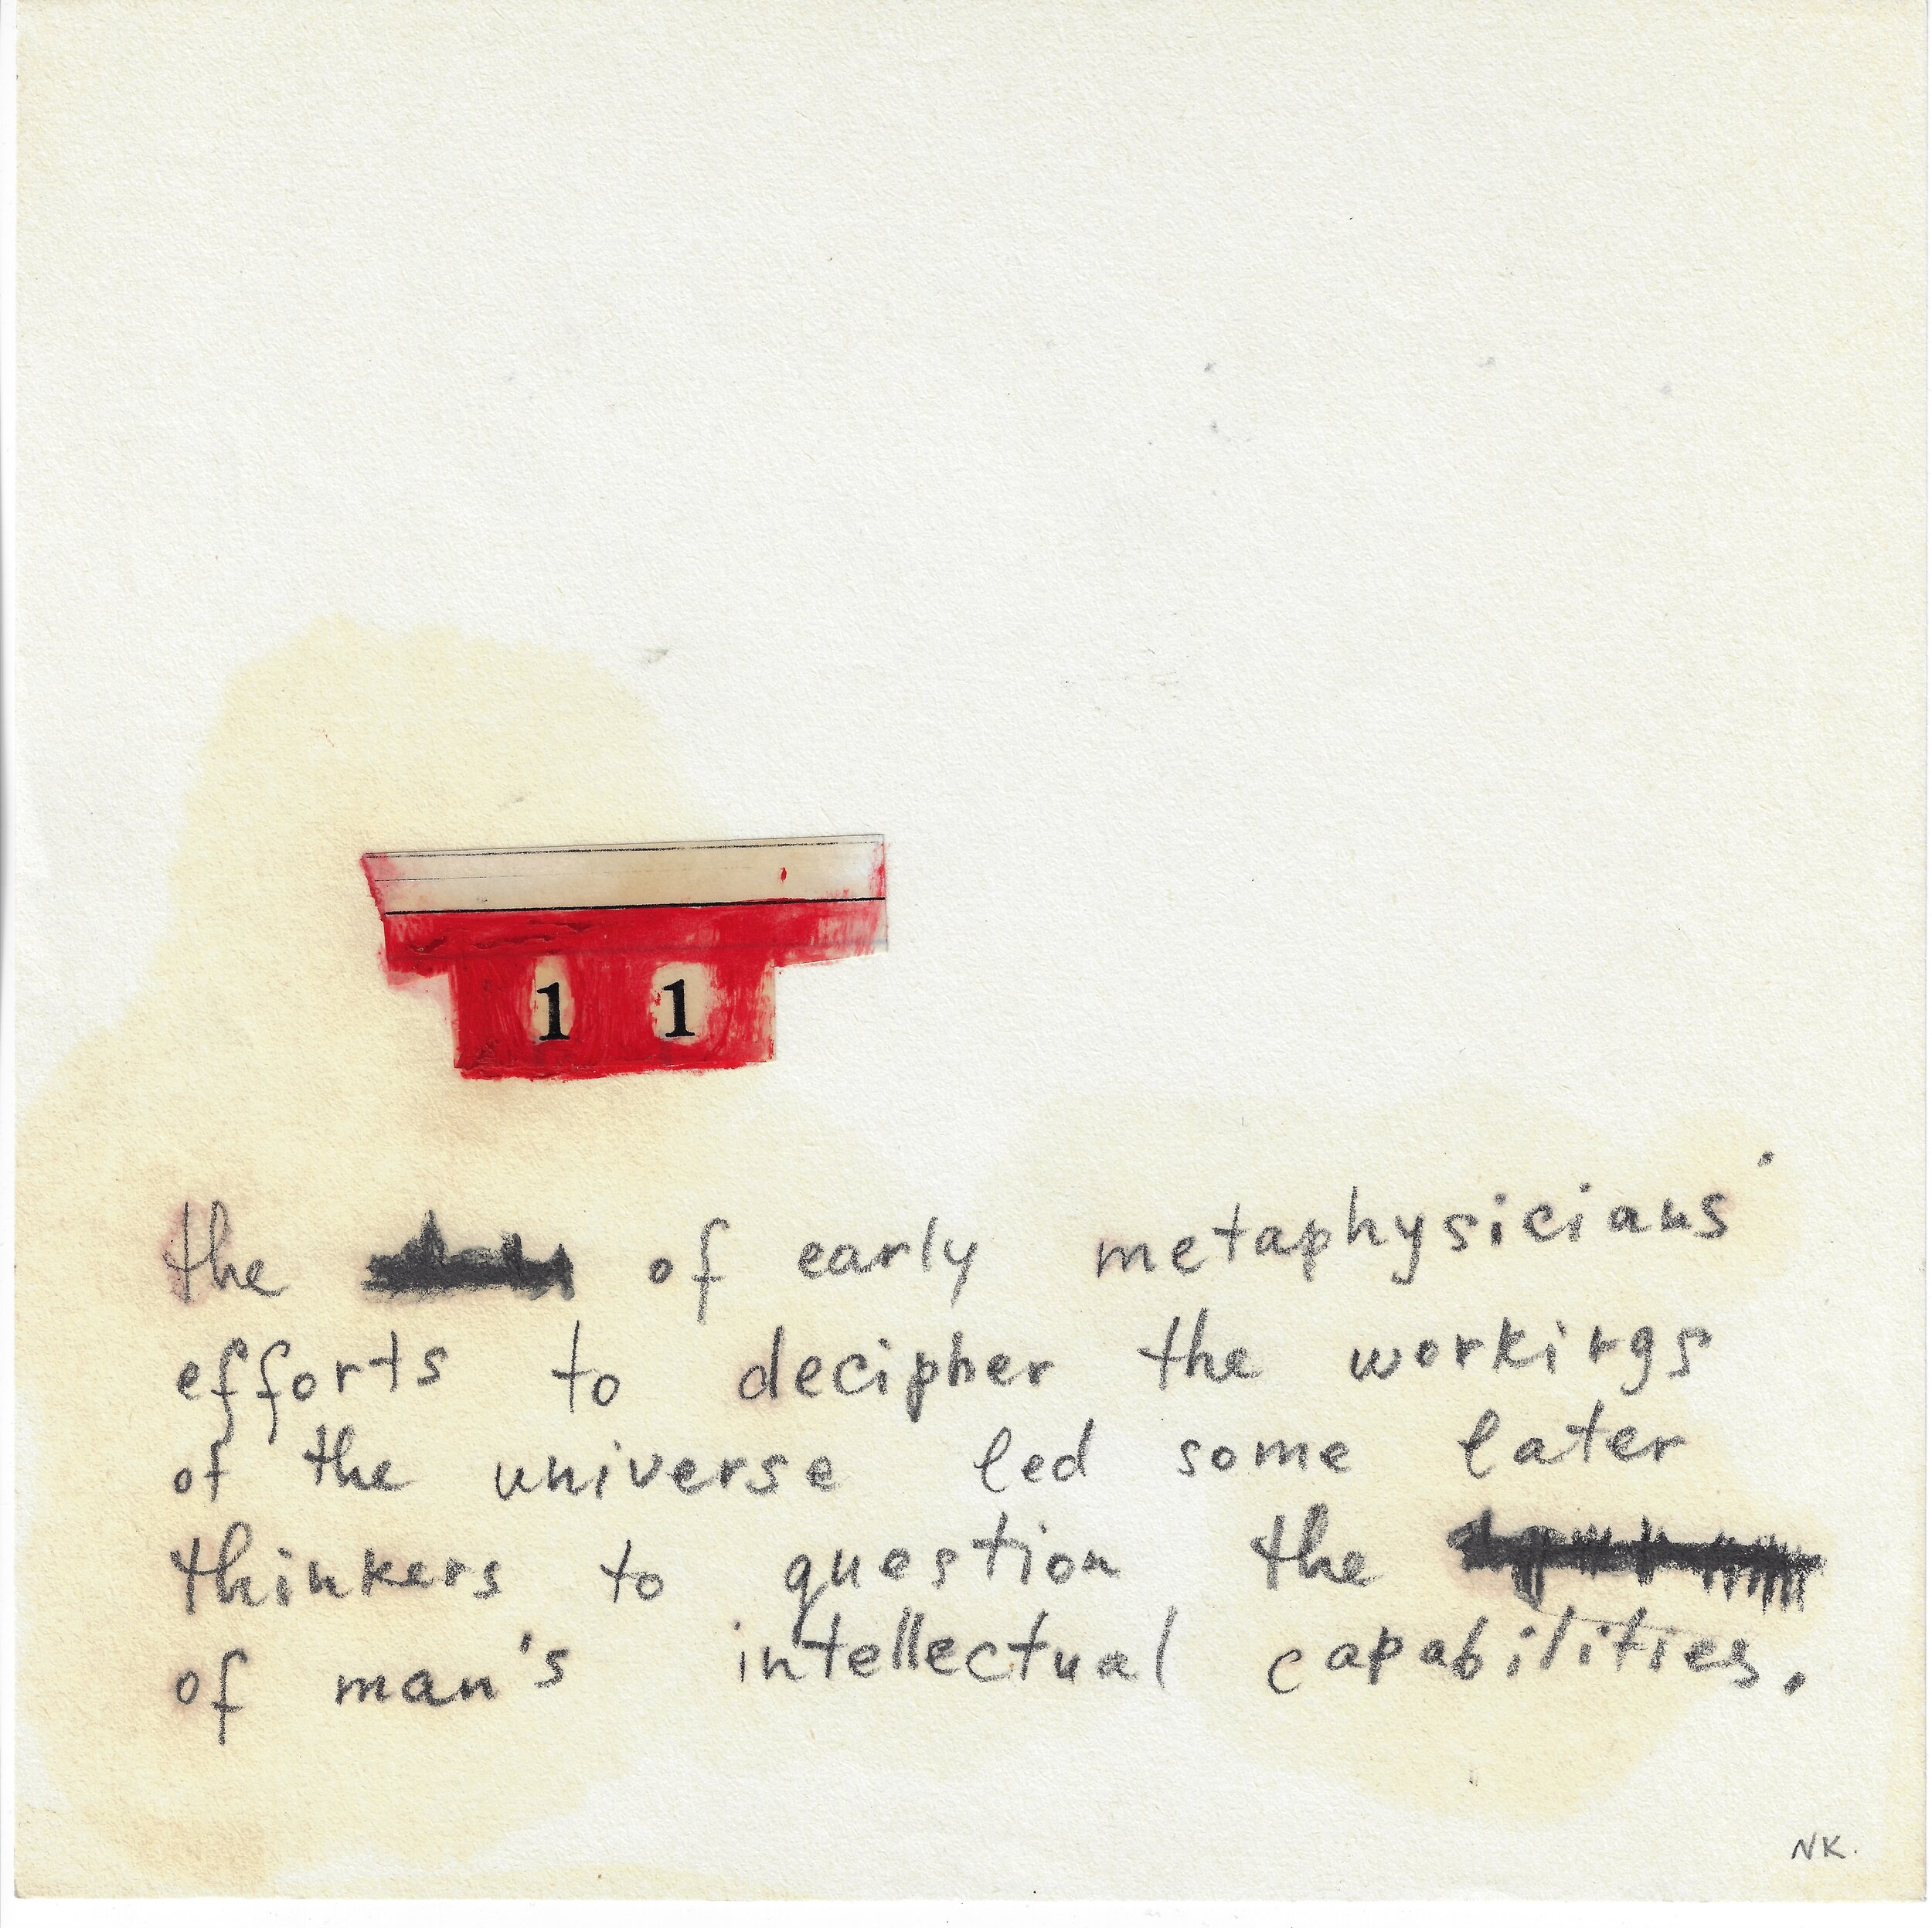 1 1
the of early metaphysicians'
efforts to decipher the workings
of the universe led some later
thinkers to question the
of man's intellectual capabilities.
NK.